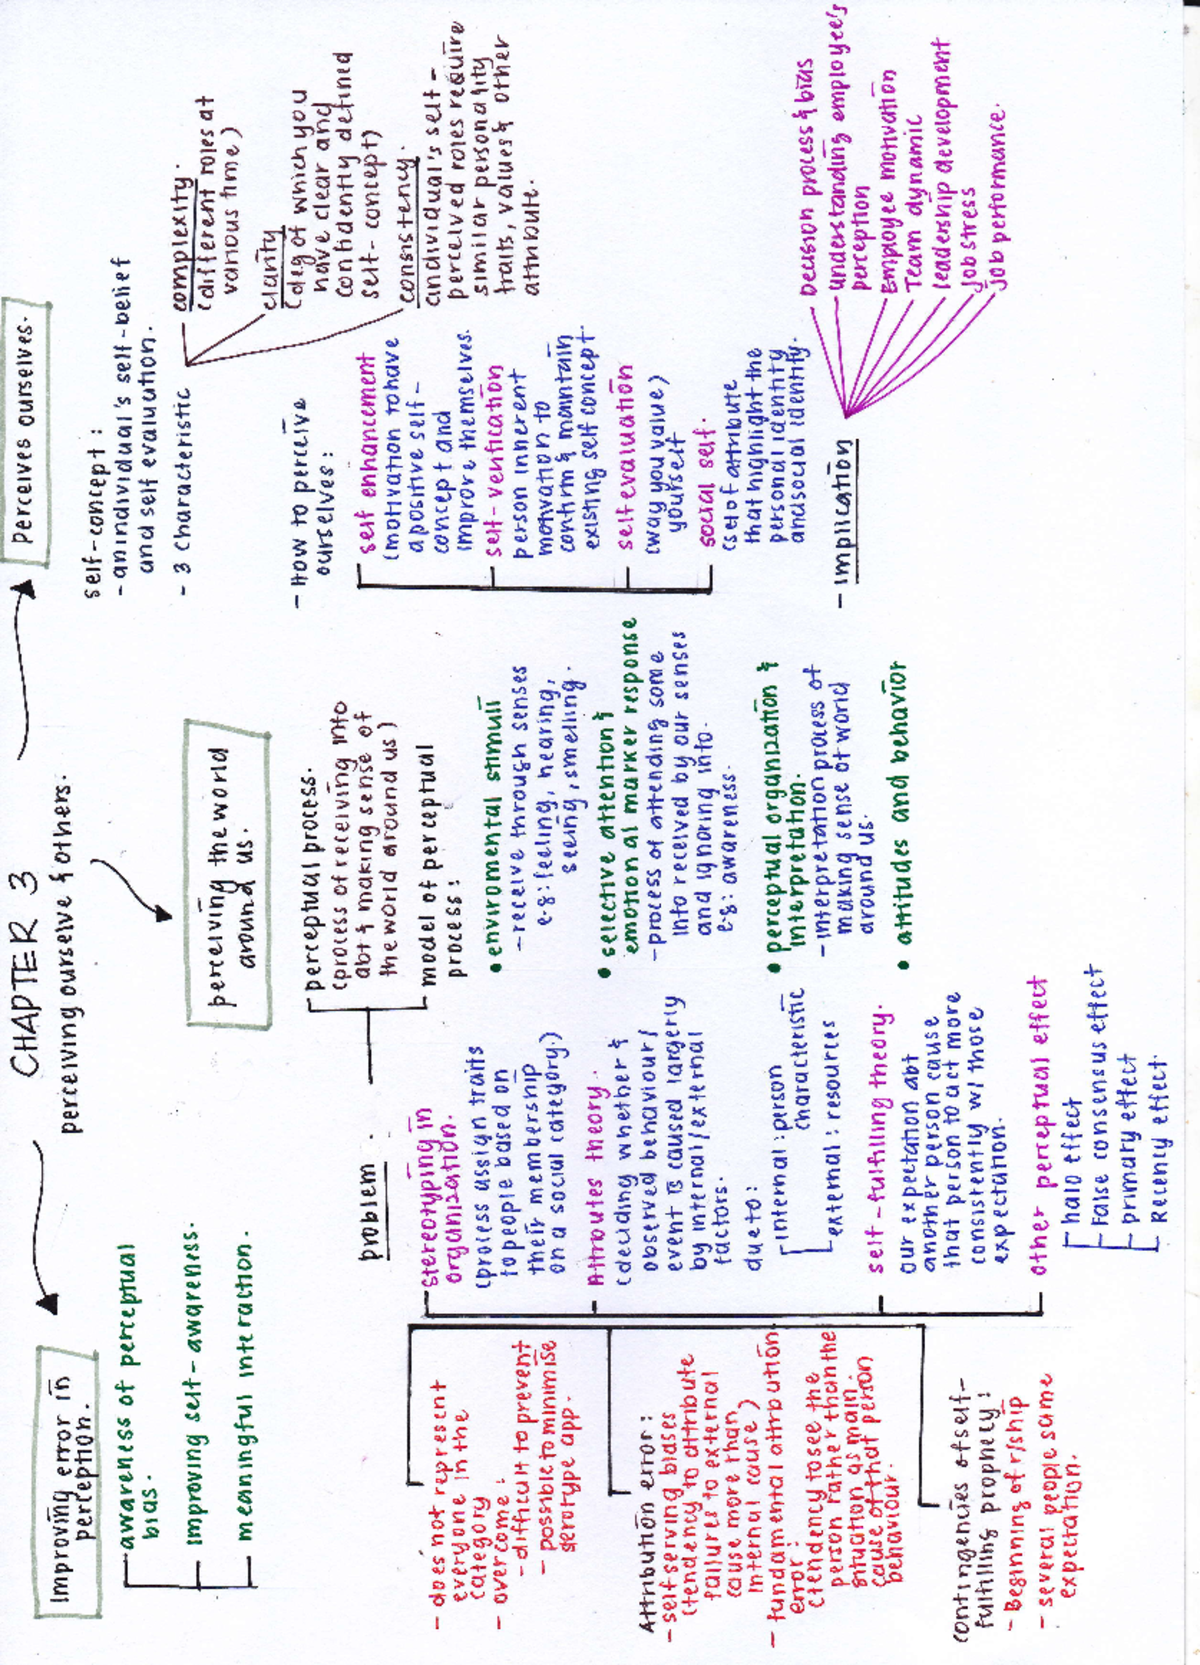 CHAPTER 3
perceiving ourselve & others.
Improving error in
perception.
awareness of perceptual
bias.
improving self-awareness.
meaningful interaction.
perceiving the world
around us.
perceptual process.
(process of receiving into
abt & making sense of
the world around us)
model of perceptual
process:
• enviromental stimuli
- receive through senses
e.g: feeling, hearing,
seeing, smelling.
• selective attention &
emotional marker response
- process of attending some
into received by our senses
and ignoring into.
e.g: awareness.
• perceptual organization &
interpretation.
- interpretation process of
making sense of world
around us.
• attitudes and behavior
problem.
stereotyping in
organization.
(process assign traits
to people based on
their membership
on a social category.)
Attributes theory.
(deciding whether &
observed behaviour/
event is caused largely
by internal/external
factors.
due to:
internal: person
characteristic
external: resources
self-fulfilling theory.
our expetation abt
another person cause
that person to act more
consistently w/ those
expectation.
other perceptual effect
halo effect
False consensus effect
primary effect
Recency effect.
- does not represent
everyone in the
category
- overcome:
- difficult to prevent
- possible to minimise
sterotype app.
Attribution error:
- self serving biases
(tendency to attribute
failures to external
cause more than
internal cause)
- fundamental attribution
error:
(tendency to see the
person rather than the
situation as main
cause of that person
behaviour.
contingencies of self-
fulfilling prophecy:
- Beginning of r/ship
- several people same
expectation.
perceives ourselves.
self-concept:
- an individual's self-belief
and self evaluation.
- 3 characteristic
complexity.
(different roles at
various time)
clarity
(deg of which you
have clear and
confidently defined
self-concept)
consistency.
(individual's self-
perceived roles require
similar personality
traits, values & other
attribute.
- How to perceive
ourselves:
self enhancement
(motivation to have
a positive self-
concept and
improve themselves.
self-verification
person inherent
motivation to
confirm & maintain
existing self concept
self evaluation
(way you value)
yourself
social self.
(set of attribute
that highlight the
personal identity
and social identity.
- implication
Decision process & bias
understanding employee's
perception
Employee motivation
Team dynamic
leadership development
job stress
job performance.